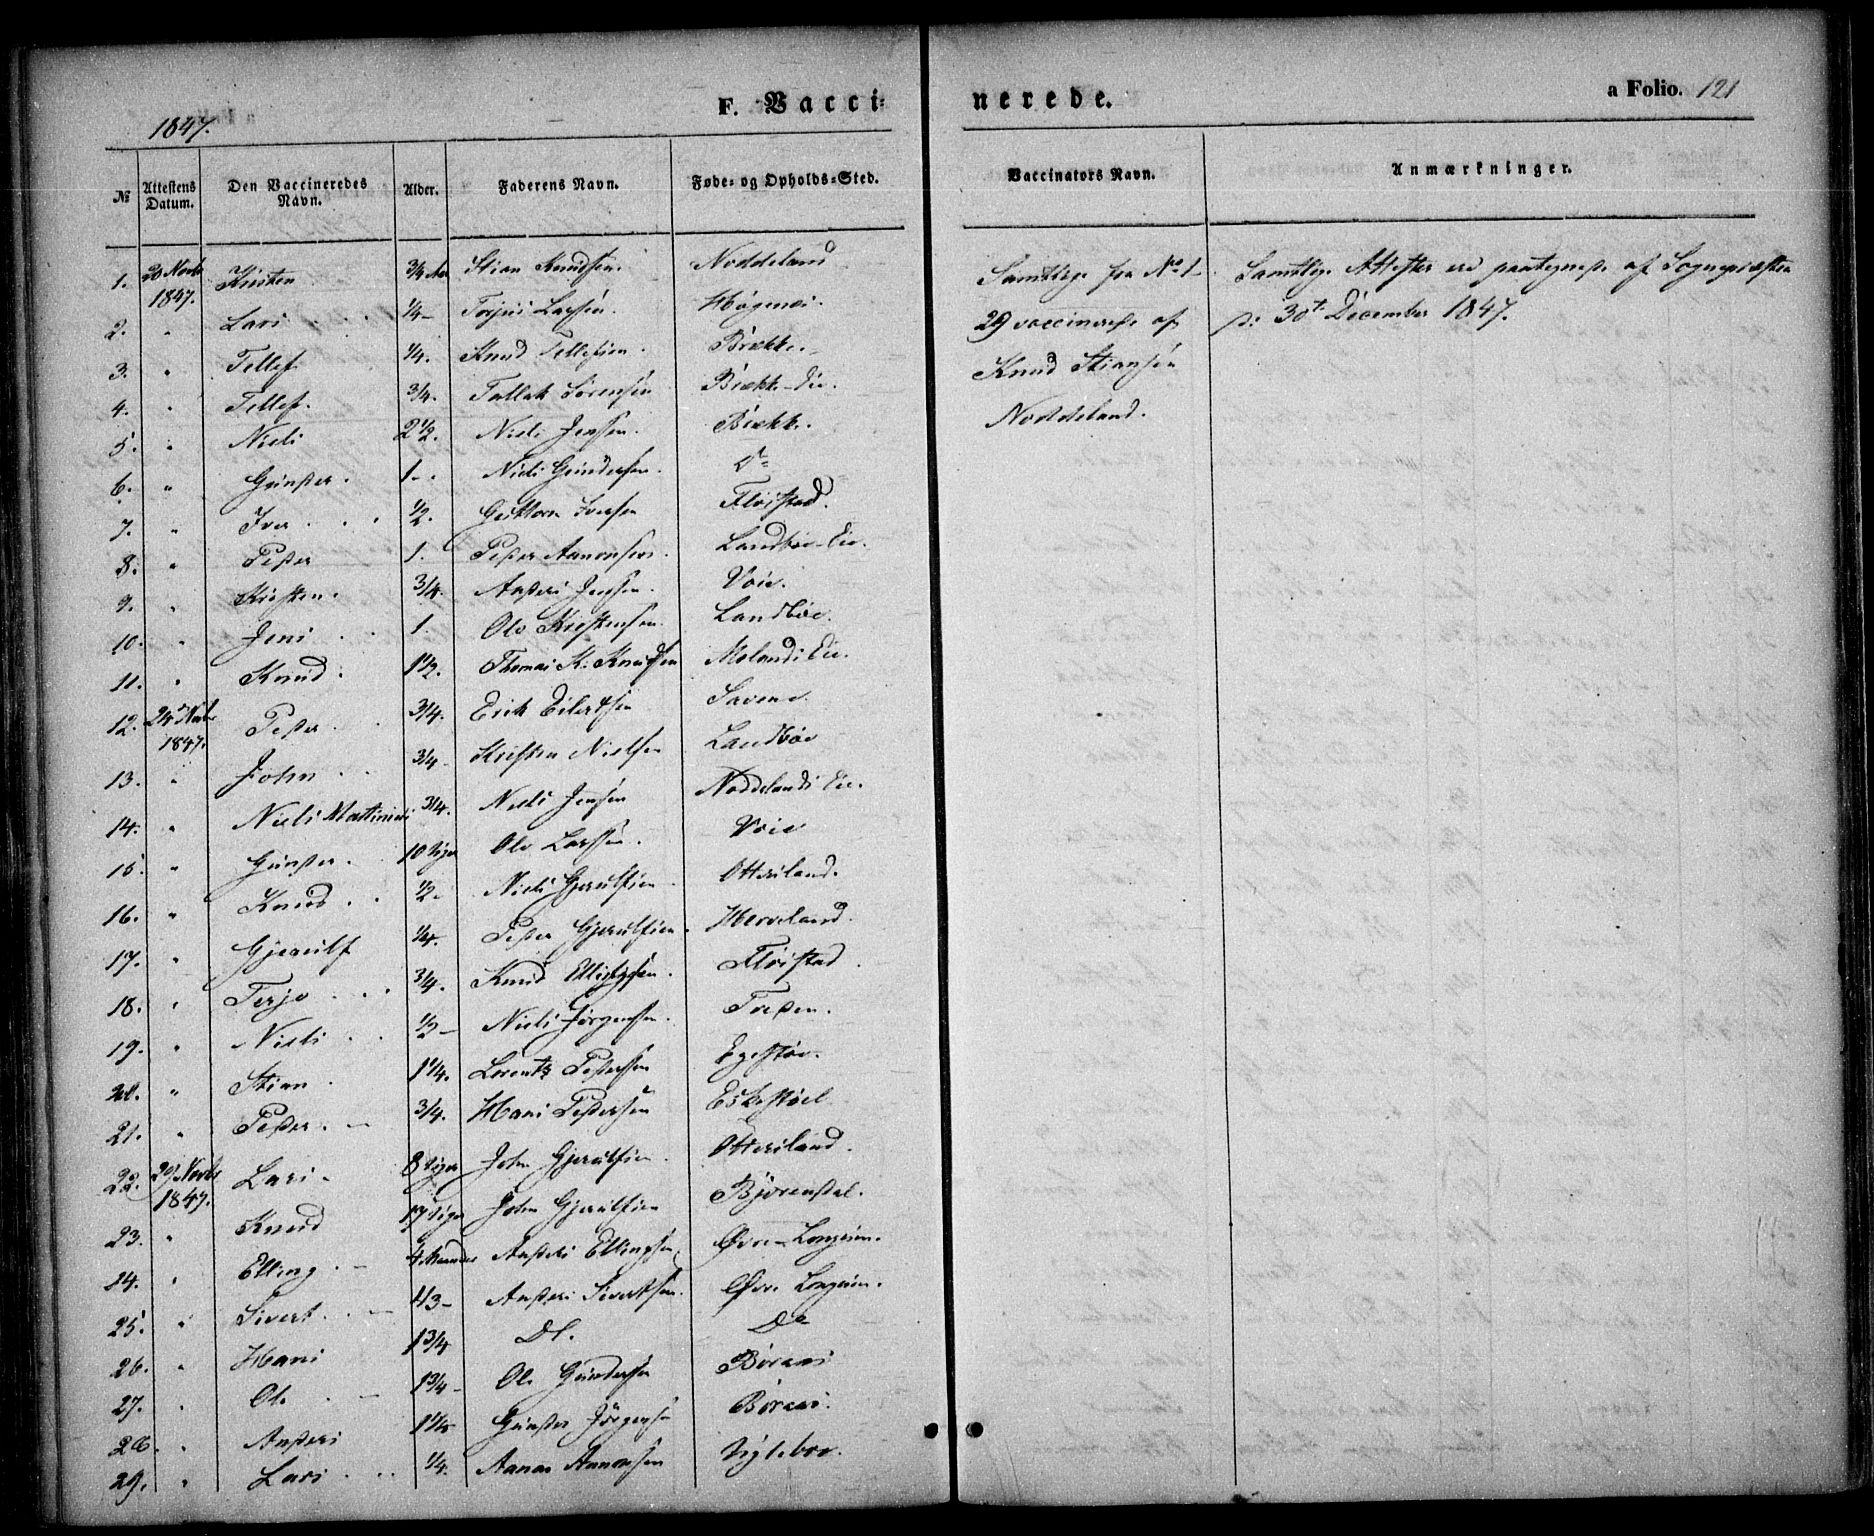 F. Vacci-
nerede.
a Folio. 121
1847.
№ Attestens Datum. Den Vaccineredes Navn. Alder. Faderens Navn. Føde- og Opholds-Sted. Vaccinators Navn. Anmærkninger.
1. 20 Novbr 1847. Kirsten 3/4 Aar Stian Knudsen. Noddeland
2. " Lars 1/4 Torjus Larsen.
3. " Tellef 1/4. Knud Tellefsen. Brække.
4. " Tellef. 3/4. Tallak Sørensen Brække-Eie.
5. " Niels 2 1/2. Niels Jensen. Brække.
6. " Gunder. 1 Niels Gundersen. Do
7. " Iver 1/2. Iversen Fløistad.
8. " Peder 1. Peder Aanonsen. Landbøe-Eie.
9. " Kirsten. 3/4. Anders Jensen. Voie.
10. " Jens 1. Ole Kristensen. Landbøe.
11. " Knud. 1 1/2. Thomas K. Knudsen Molands Eie.
12. 24 Novbr 1847. Peder 3/4. Erik Eilertsen
13. " John 3/4 Kristen Nielsen Landbøe
14. " Niels Martinius 3/4. Niels Jensen Noddelands Eie.
15. " Gunder. 10 Uger Ole Larssen. Voie
16. " Knud 1/2. Niels Gjerulfsen Otterland.
17. " Gjerulf 1/4. Peder Gjerulfsen. Herveland.
18. " Terje 3/4. Knud Ellingsen. Fløistad.
19. " Niels 1/2 Niels Jørgensen. Treden.
20. " Stian. 1 1/4. Lorentz Pedersen
21. " Peder. 3/4. Hans Pedersen
22. 29 Novbr 1847. Lars. 8 Uger John Gjerulfsen. Otterland.
23. " Knud 17 Uger John Gjerulfsen
24. " Elling. 4 Maaneder Anders Ellingsen. Øvre-Longum.
25. " Sivert. Anders Sivertsen. Øvre Longum.
26. " Hans 1 3/4 Do. Do
27. " Ole 1 3/4 Ole Gundersen
28. " Anders 1 1/4 Gunder Jørgensen
29. " Lars 1/4. Aanon Aanonsen
Samtlige fra No 1-
29 vaccinerede af
Knud Stiansen
Noddeland.
Samtlige Attester ere paategnede af Sognepræsten
30te December 1847.